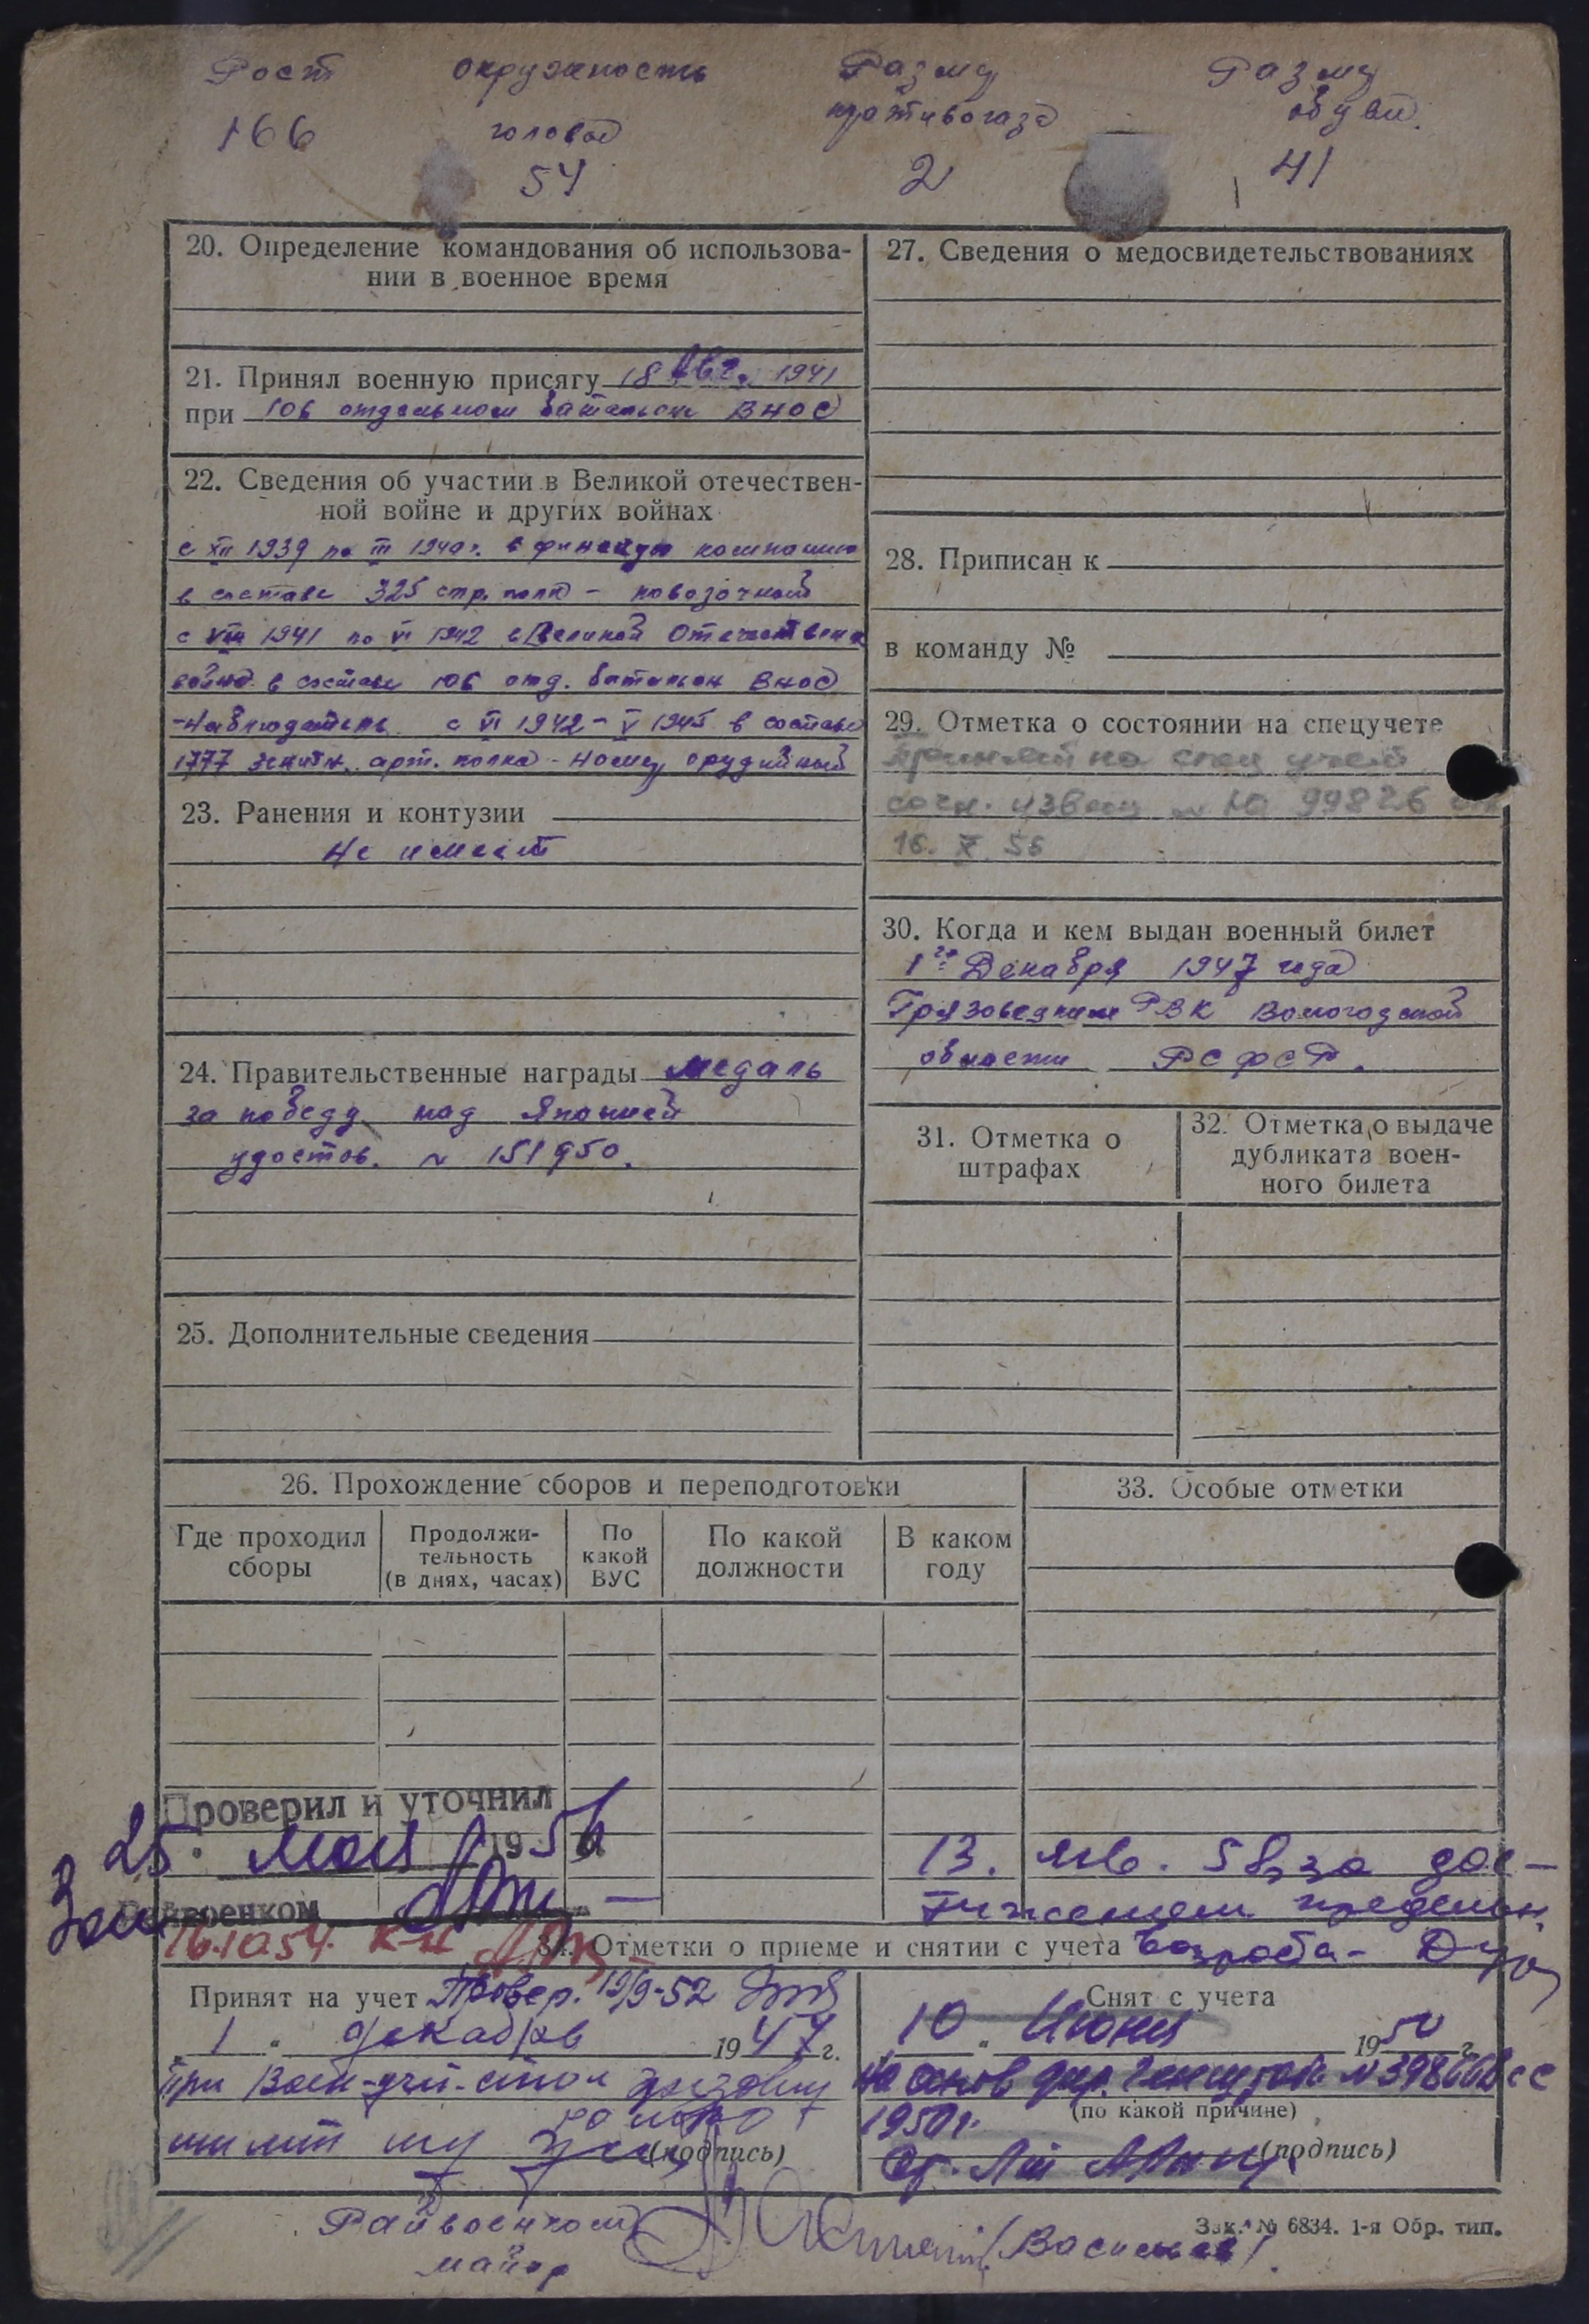 Рост окружность Размер Размер
166 головы противогаза обуви.
54 2 41
20. Определение командования об использова-
нии в военное время
21. Принял военную присягу 18 Авг. 1941
при 106 отдельном батальон ВНОС
22. Сведения об участии в Великой отечествен-
ной войне и других войнах
с XII 1939 по III 1940 г. в финскую компанию
в составе 325 стр. полк - повозочный
с VIII 1941 по VI 1942 в Великой Отечествен
войне в составе 106 отд. батальон ВНОС
- Наблюдатель с VI 1942 - V 1945 в составе
1777 зенитн. арт. полка - номер орудийный
23. Ранения и контузии
Не имеет
24. Правительственные награды медаль
за победу над Японией
удостов. № 151950.
25. Дополнительные сведения
27. Сведения о медосвидетельствованиях
28. Приписан к
в команду №
29. Отметка о состоянии на спецучете
Принят на спец учет
извещ № 99826
16. X. 56
30. Когда и кем выдан военный билет
1го Декабря 1947 года
Грязовецким РВК Вологодской
области РСФСР.
31. Отметка о
штрафах
32. Отметка о выдаче
дубликата воен-
ного билета
26. Прохождение сборов и переподготовки
Где проходил
сборы
Продолжи-
тельность
(в днях, часах)
По
какой
ВУС
По какой
должности
В каком
году
33. Особые отметки
Проверил и уточнил
25. мая 1956
Зам Райвоенком
13. янв. 58 за дос-
тижением предельн.
возраста -
16.10.54.
34. Отметки о приеме и снятии с учета
Принят на учет Провер. 19/9-52
1 " декабрь 1947 г.
При Воен-учет-стол
(подпись)
Снят с учета
10 " Июня 1950 г.
На основ дир. Генштаба № 398662сс
1950 г. (по какой причине)
Ст. Л-т (подпись)
Райвоенком
майор /Васильев/.
Зак. № 6834. 1-я Обр. тип.